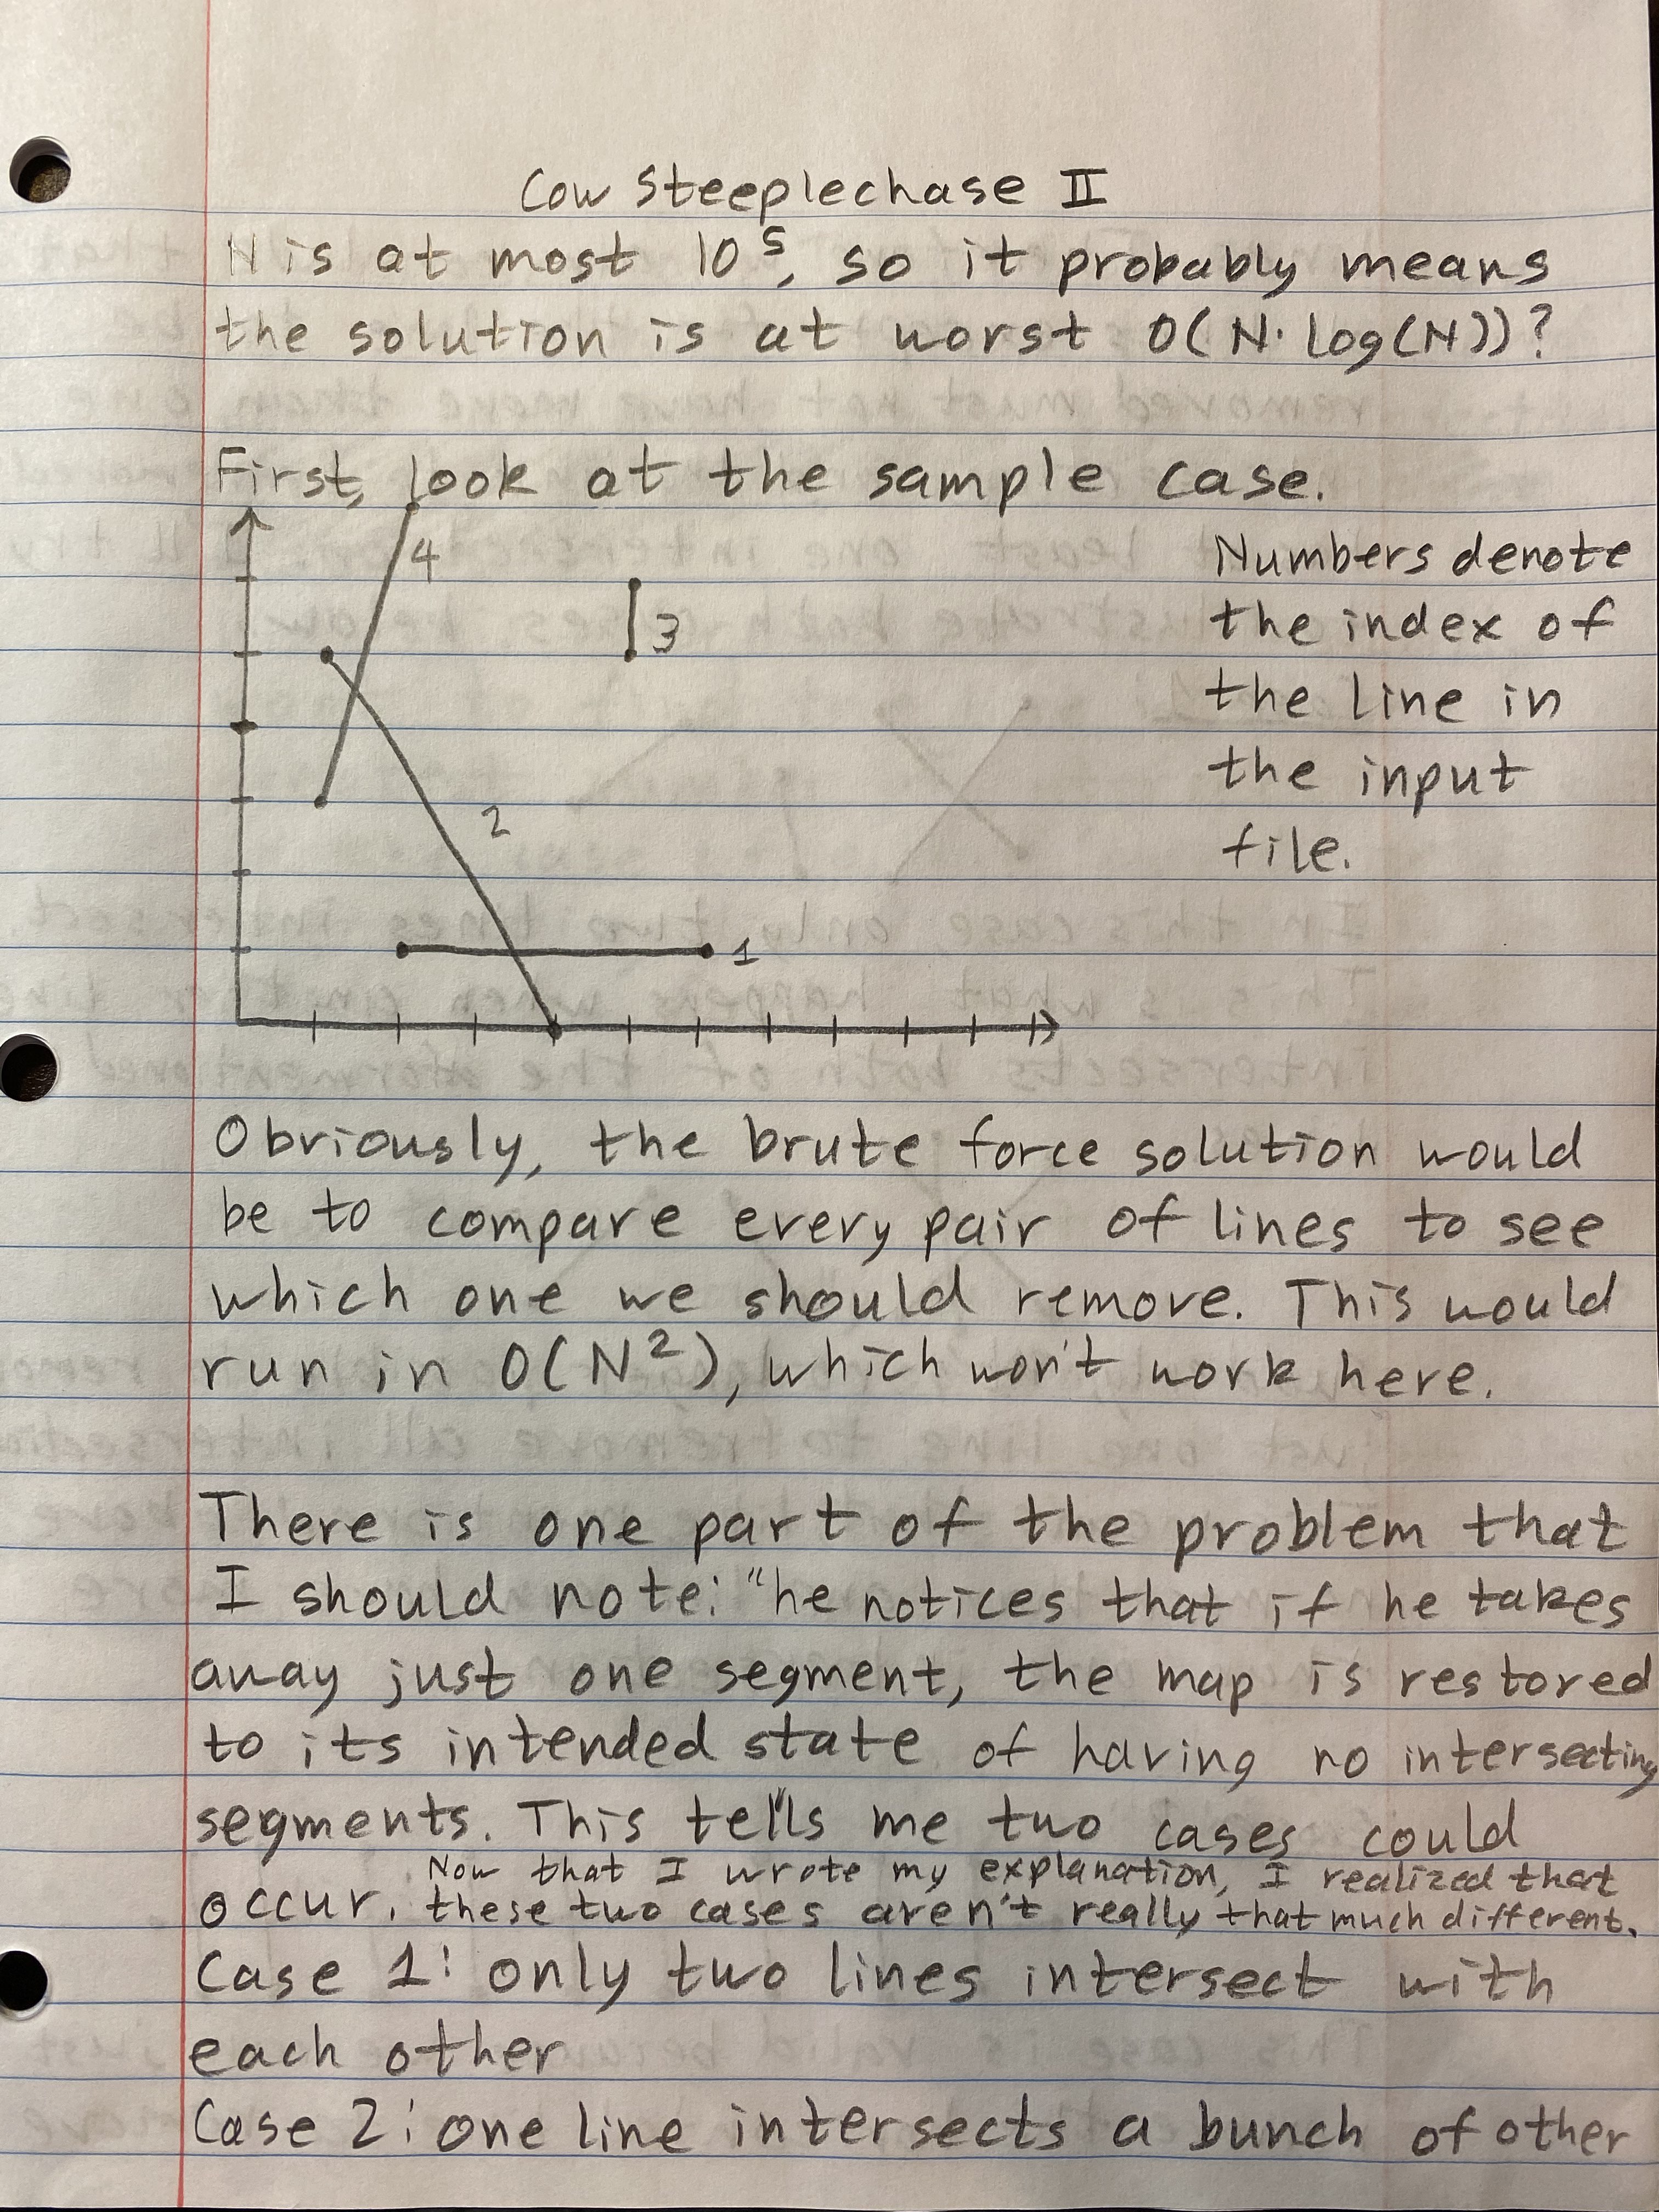 Cow Steeplechase II
N is at most 10^5, so it probably means
the solution is at worst O(N·log(N))?
First, look at the sample case.
4
3
2
1
Numbers denote
the index of
the line in
the input
file.
Obviously, the brute force solution would
be to compare every pair of lines to see
which one we should remove. This would
run in O(N²), which won't work here.
There is one part of the problem that
I should note: "he notices that if he takes
away just one segment, the map is restored
to its intended state of having no intersecting
segments." This tells me two cases could
occur. Now that I wrote my explanation, I realized that
these two cases aren't really that much different.
Case 1: only two lines intersect with
each other
Case 2: one line intersects a bunch of other